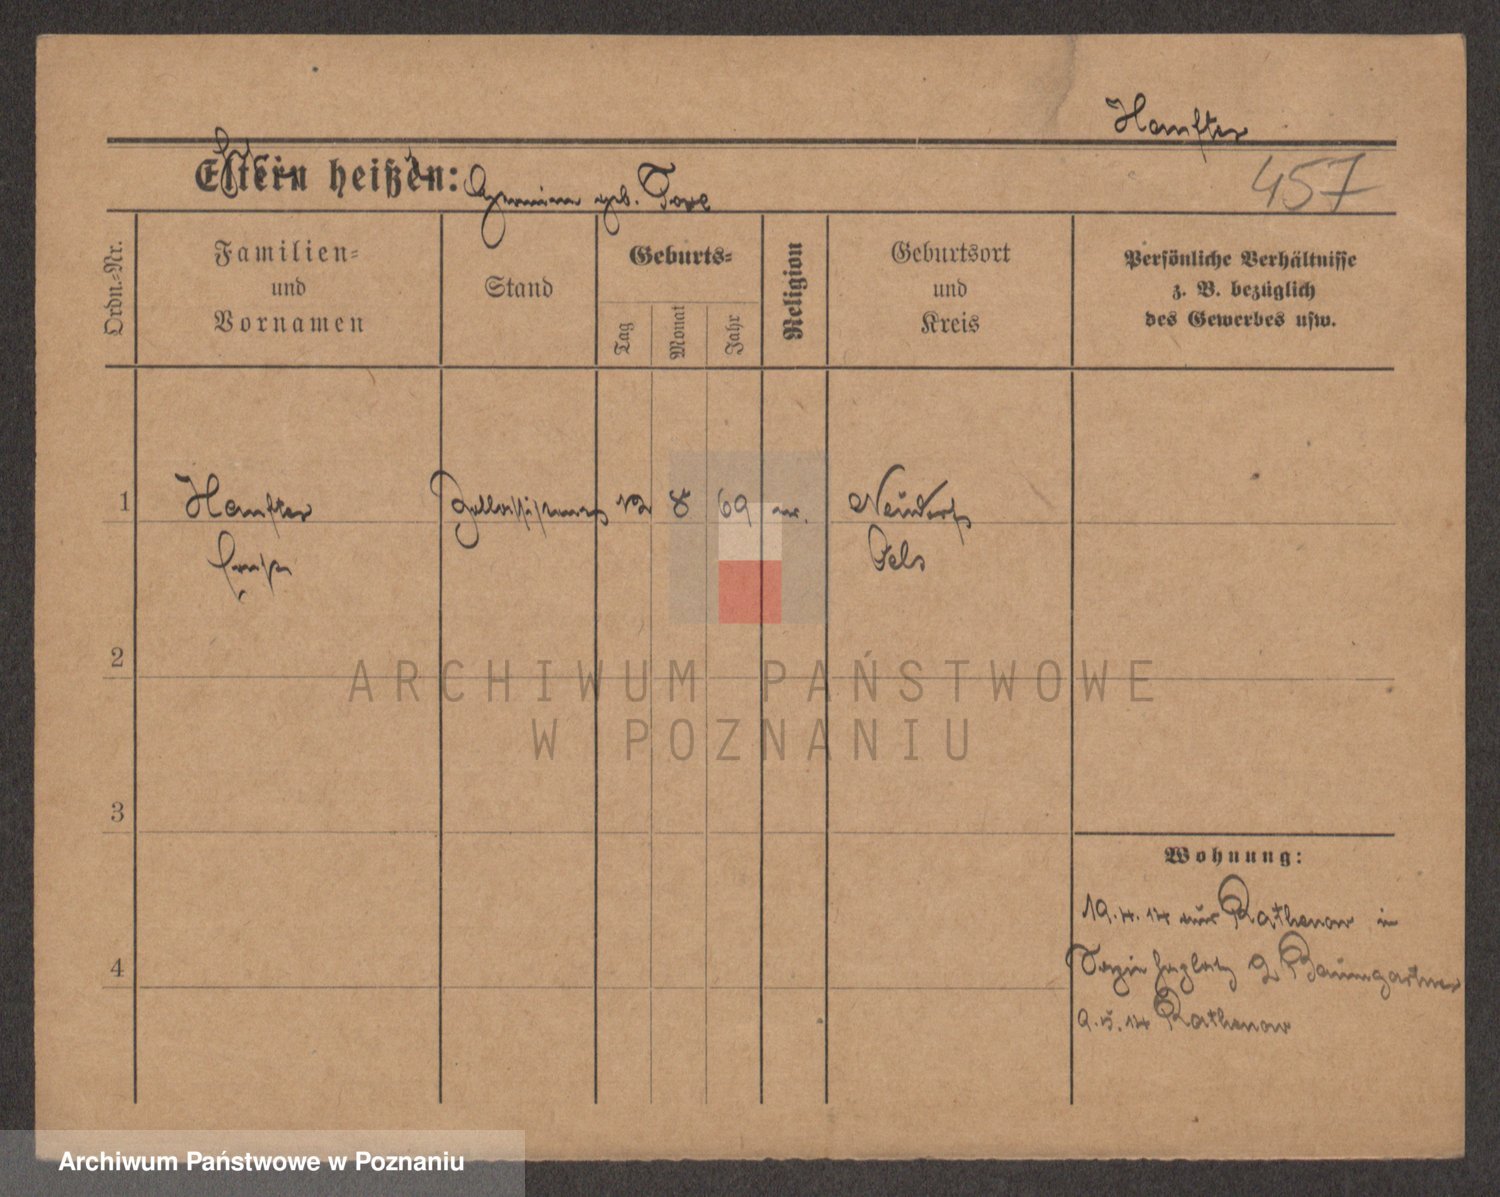 Hanfter
457
Eltern heißen:
geb.
Ordn.-Nr.
Familien-
und
Vornamen
Stand
Geburts-
Tag
Monat
Jahr
Religion
Geburtsort
und
Kreis
Persönliche Verhältnisse
z. B. bezüglich
des Gewerbes usw.
1
Hanfter
12 8 69 ev.
Neudorf
Oels
2
ARCHIWUM PAŃSTWOWE
W POZNANIU
3
Wohnung:
19.4.14 aus Rathenow in
2 Baumgartner
4
9.5.14 Rathenow
Archiwum Państwowe w Poznaniu